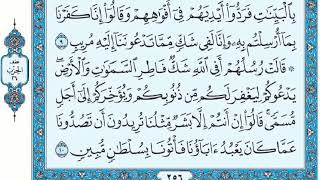 بِٱلْبَيِّنَٰتِ فَرَدُّوٓا۟ أَيْدِيَهُمْ فِىٓ أَفْوَٰهِهِمْ وَقَالُوٓا۟ إِنَّا كَفَرْنَا
بِمَآ أُرْسِلْتُم بِهِۦ وَإِنَّا لَفِى شَكٍّ مِّمَّا تَدْعُونَنَآ إِلَيْهِ مُرِيبٍ ٩
۞ قَالَتْ رُسُلُهُمْ أَفِى ٱللَّهِ شَكٌّ فَاطِرِ ٱلسَّمَٰوَٰتِ وَٱلْأَرْضِ
يَدْعُوكُمْ لِيَغْفِرَ لَكُم مِّن ذُنُوبِكُمْ وَيُؤَخِّرَكُمْ إِلَىٰٓ أَجَلٍ
مُّسَمًّى قَالُوٓا۟ إِنْ أَنتُمْ إِلَّا بَشَرٌ مِّثْلُنَا تُرِيدُونَ أَن تَصُدُّونَا
عَمَّا كَانَ يَعْبُدُ ءَابَآؤُنَا فَأْتُونَا بِسُلْطَٰنٍ مُّبِينٍ ١٠
٢٥٦